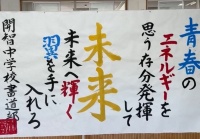 青春の
エネルギーを
思う存分発揮
して
未来
未来へ輝く
翼を手に
入れろ
開智中学校書道部